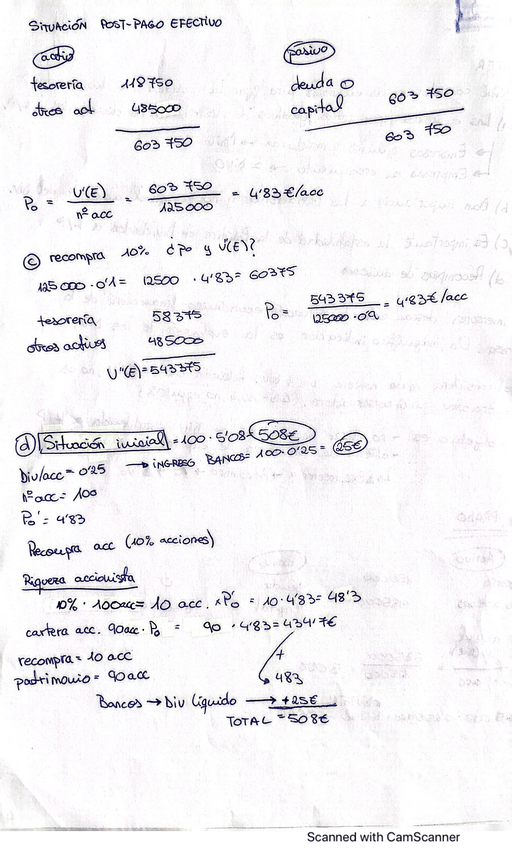 SITUACIÓN POST-PAGO EFECTIVO
activo
tesorería 118750
otros act 485000
603 750
pasivo
deuda 0
capital 603 750
603 750
P₀ = U'(E) / nº acc = 603 750 / 125000 = 4'83 €/acc
ⓒ recompra 10% ¿P₀ y U(E)?
125 000 · 0'1 = 12500 · 4'83 = 60375
tesorería 58375
otros activos 485000
U''(E) = 543375
P₀ = 543375 / 125000 · 0'9 = 4'83€/acc
ⓓ Situación inicial = 100 · 5'08 = 508€
Div/acc = 0'25 → INGRESO BANCOS = 100 · 0'25 = 25€
nº acc = 100
P₀' = 4'83
Recompra acc (10% acciones)
Riqueza accionista
10% · 100acc = 10 acc. x P'₀ = 10 · 4'83 = 48'3
cartera acc. 90acc · P₀ = 90 · 4'83 = 434'7€
recompra = 10 acc
patrimonio = 90 acc
+
483
Bancos → Div líquido → +25€
TOTAL = 508€
Scanned with CamScanner